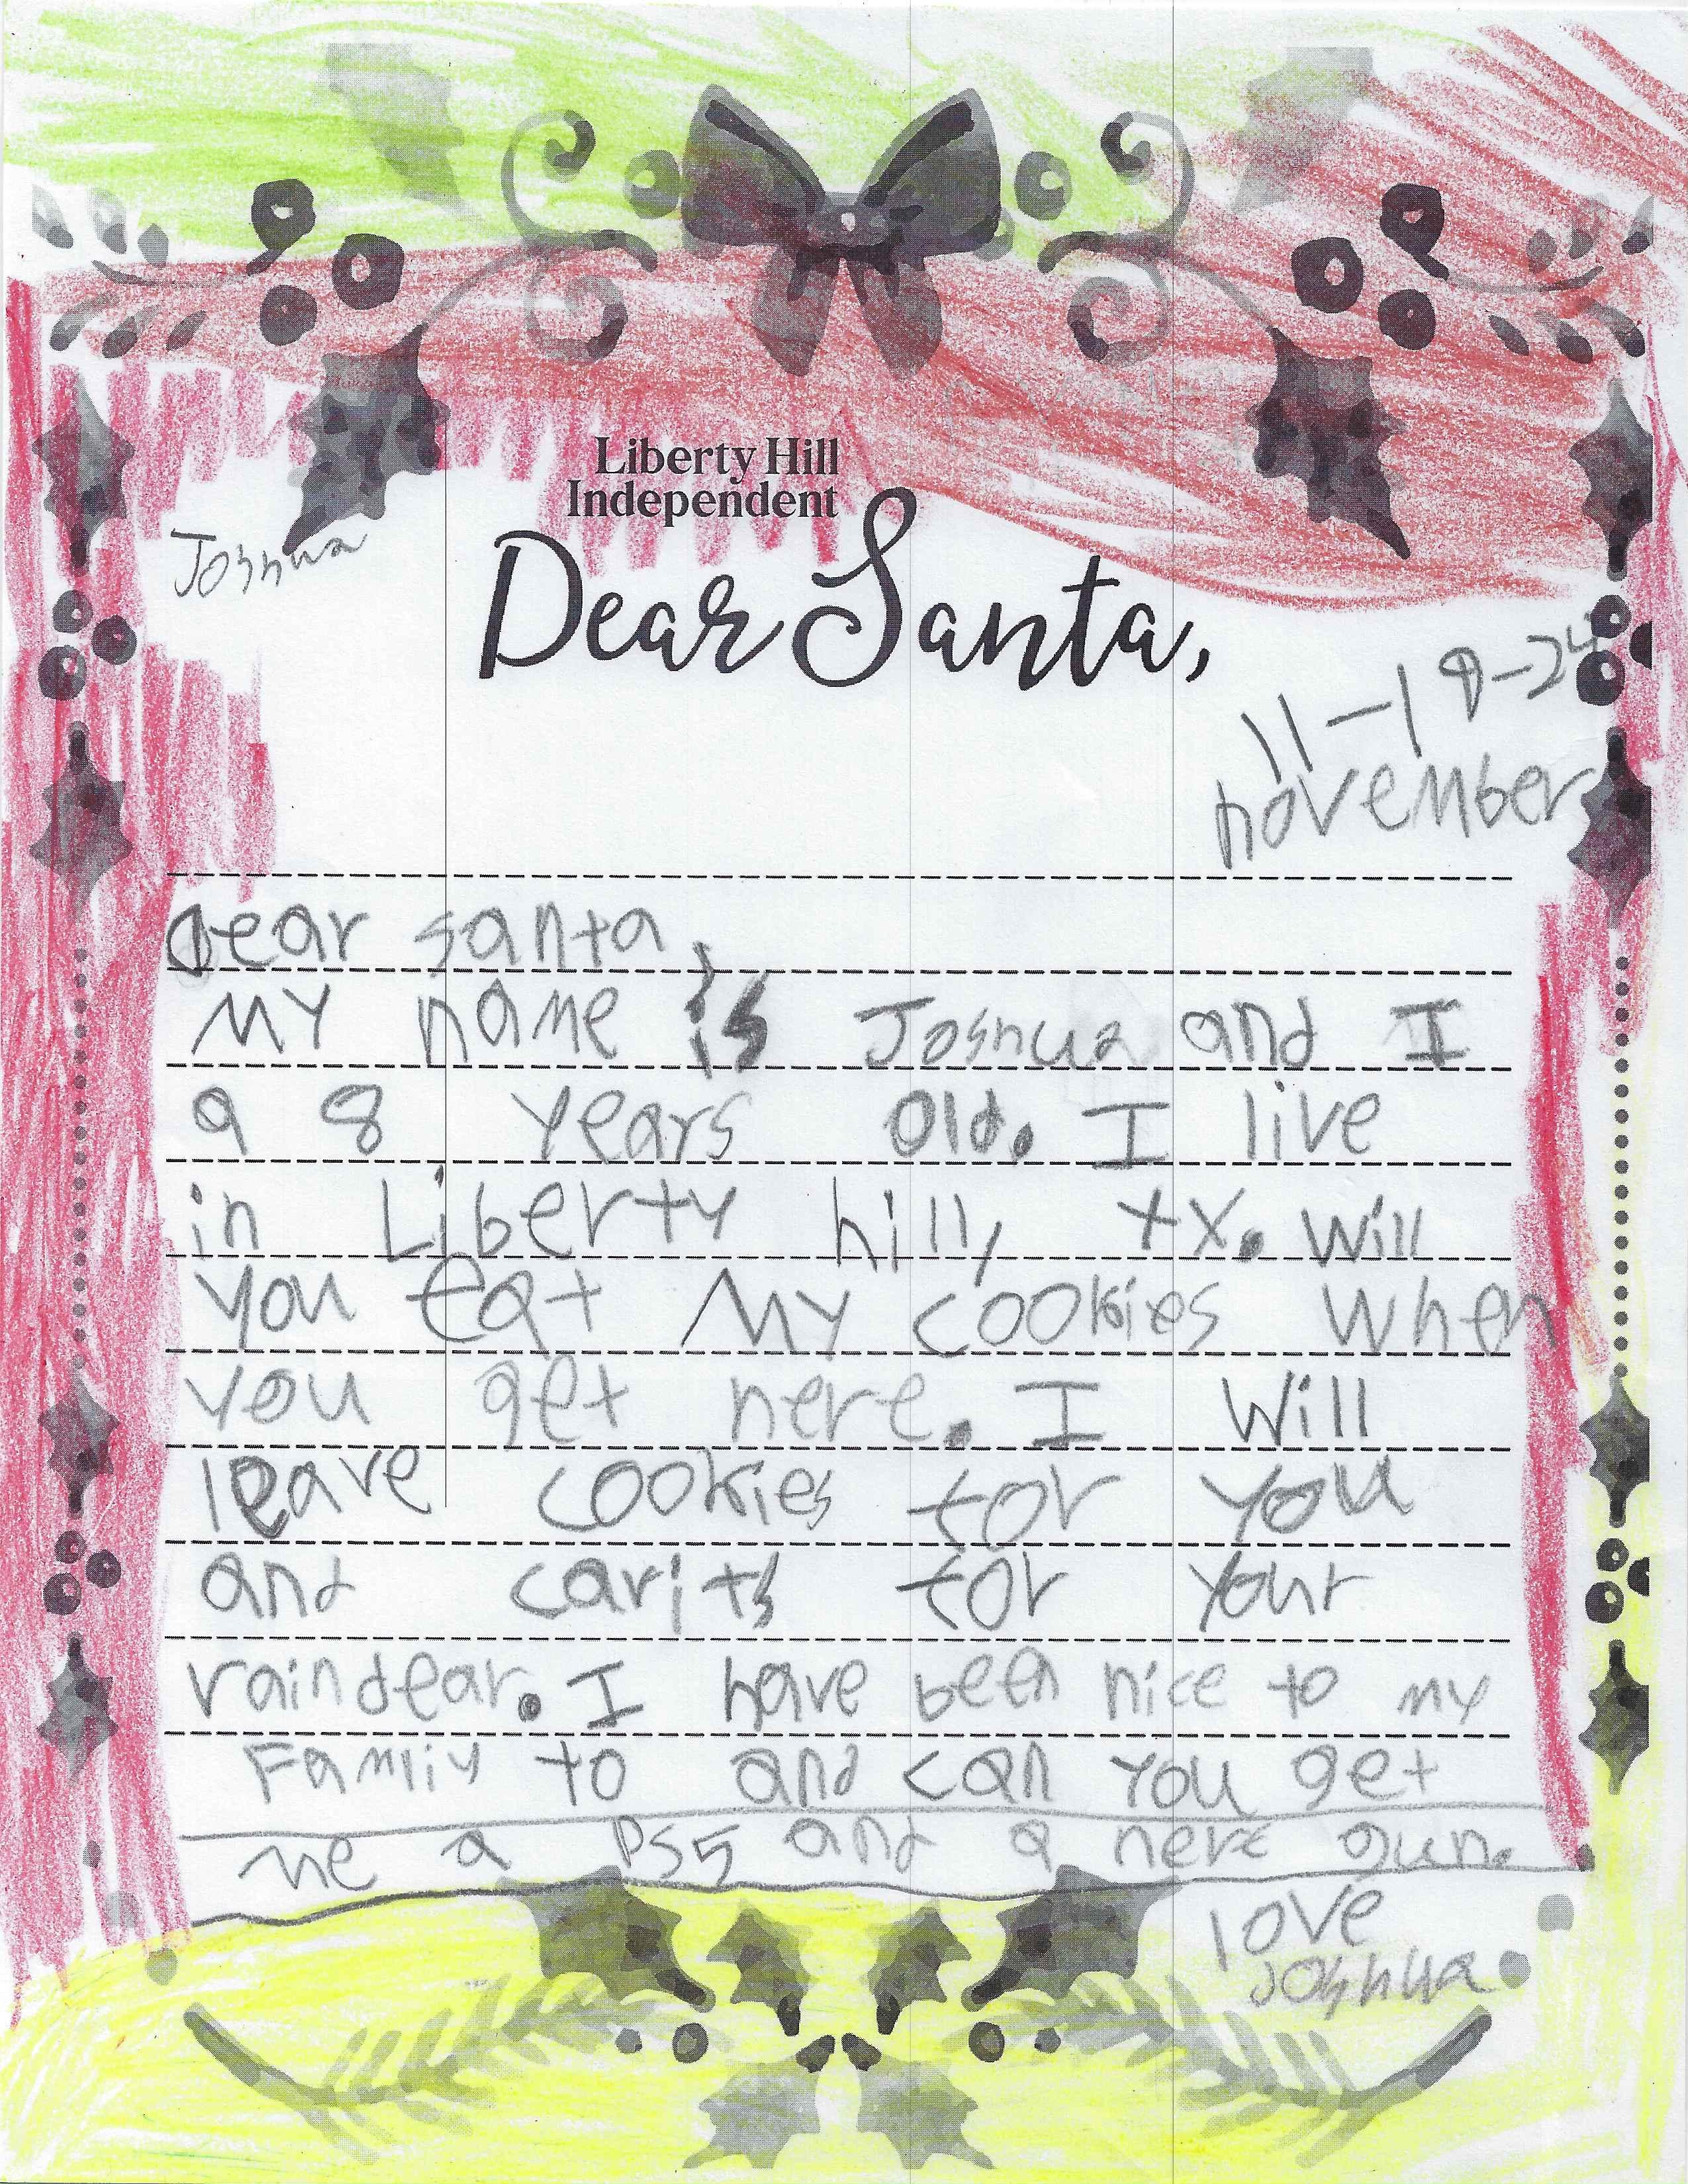 Liberty Hill
Independent
Joshua
Dear Santa,
11-18-24
november
Dear santa,
MY name is Joshua and I
a 8 years old. I live
in Liberty hill, tx. will
you eat My cookies when
you get here. I will
leave cookies for you
and carits for your
raindear. I have been nice to my
Famliy to and can you get
me a PS5 and a nerf gun.
love
Joshua